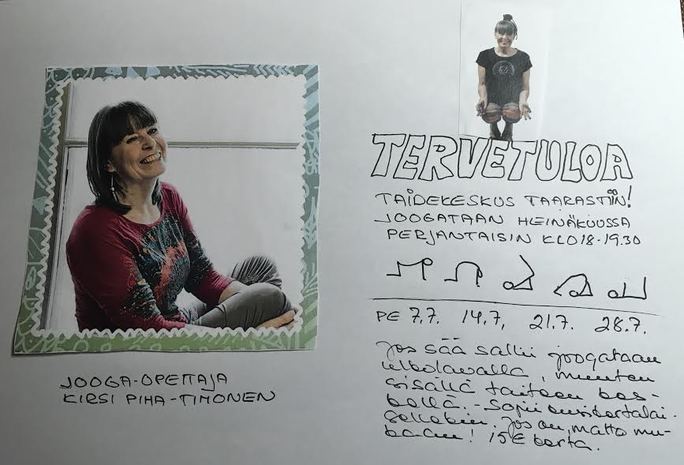 TERVETULOA
TAIDEKESKUS TAARASTIIN!
JOOGATAAN HEINÄKUUSSA
PERJANTAISIN KLO 18-19.30
PE 7.7. 14.7, 21.7. 28.7.
Jos sää sallii joogataan
ulkolavalla, muuten
sisällä taiteen kes-
kellä. - Sopii ensikertalai-
sellekin. Jos on, matto mu-
kaan! 15€ kerta.
JOOGA-OPETTAJA
KIRSI PIHA-TIMONEN